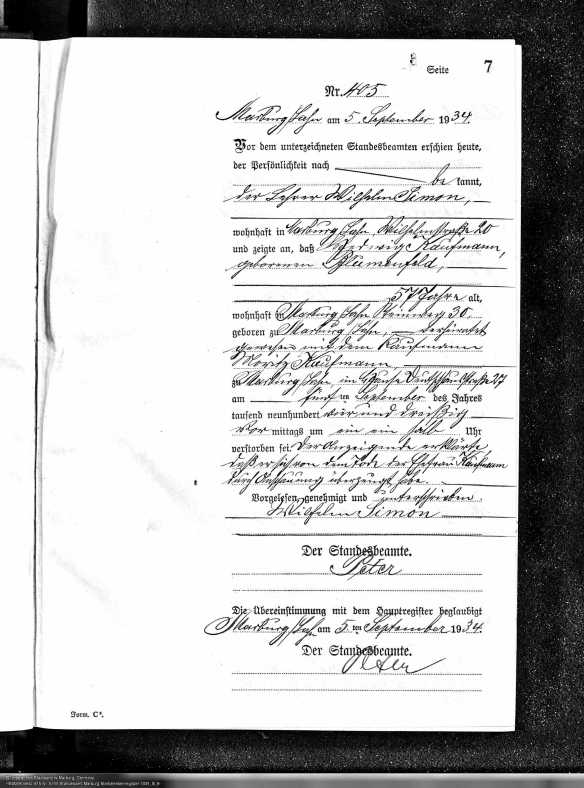 8
Seite 7
Nr. 405
Marburg Lahn am 5. September 1934.
Vor dem unterzeichneten Standesbeamten erschien heute,
der Persönlichkeit nach
be kannt,
der Lehrer Wilhelm Simon,
wohnhaft in Marburg Lahn, Wilhelmstraße 20
und zeigte an, daß Hedwig Kaufmann,
geborenen Blumenfeld,
57 Jahre alt,
wohnhaft in Marburg Lahn Steinweg 30.
geboren zu Marburg Lahn, verheiratet
gewesen mit dem Kaufmann
Moritz Kaufmann
zu Marburg Lahn, im Hause Deutschhausstraße 27
am fünf ten September des Jahres
tausend neunhundert vier und dreißig
vor mittags um ein ein halb Uhr
verstorben sei. Der Anzeigende erklärte
daß er sich von dem Tode der Ehefrau Kaufmann
durch Anschauung überzeugt habe.
Vorgelesen, genehmigt und unterschrieben.
Wilhelm Simon
Der Standesbeamte.
Peter
Die Übereinstimmung mit dem Hauptregister beglaubigt
Marburg Lahn am 5. ten September 1934.
Der Standesbeamte.
Peter
Form. C*.